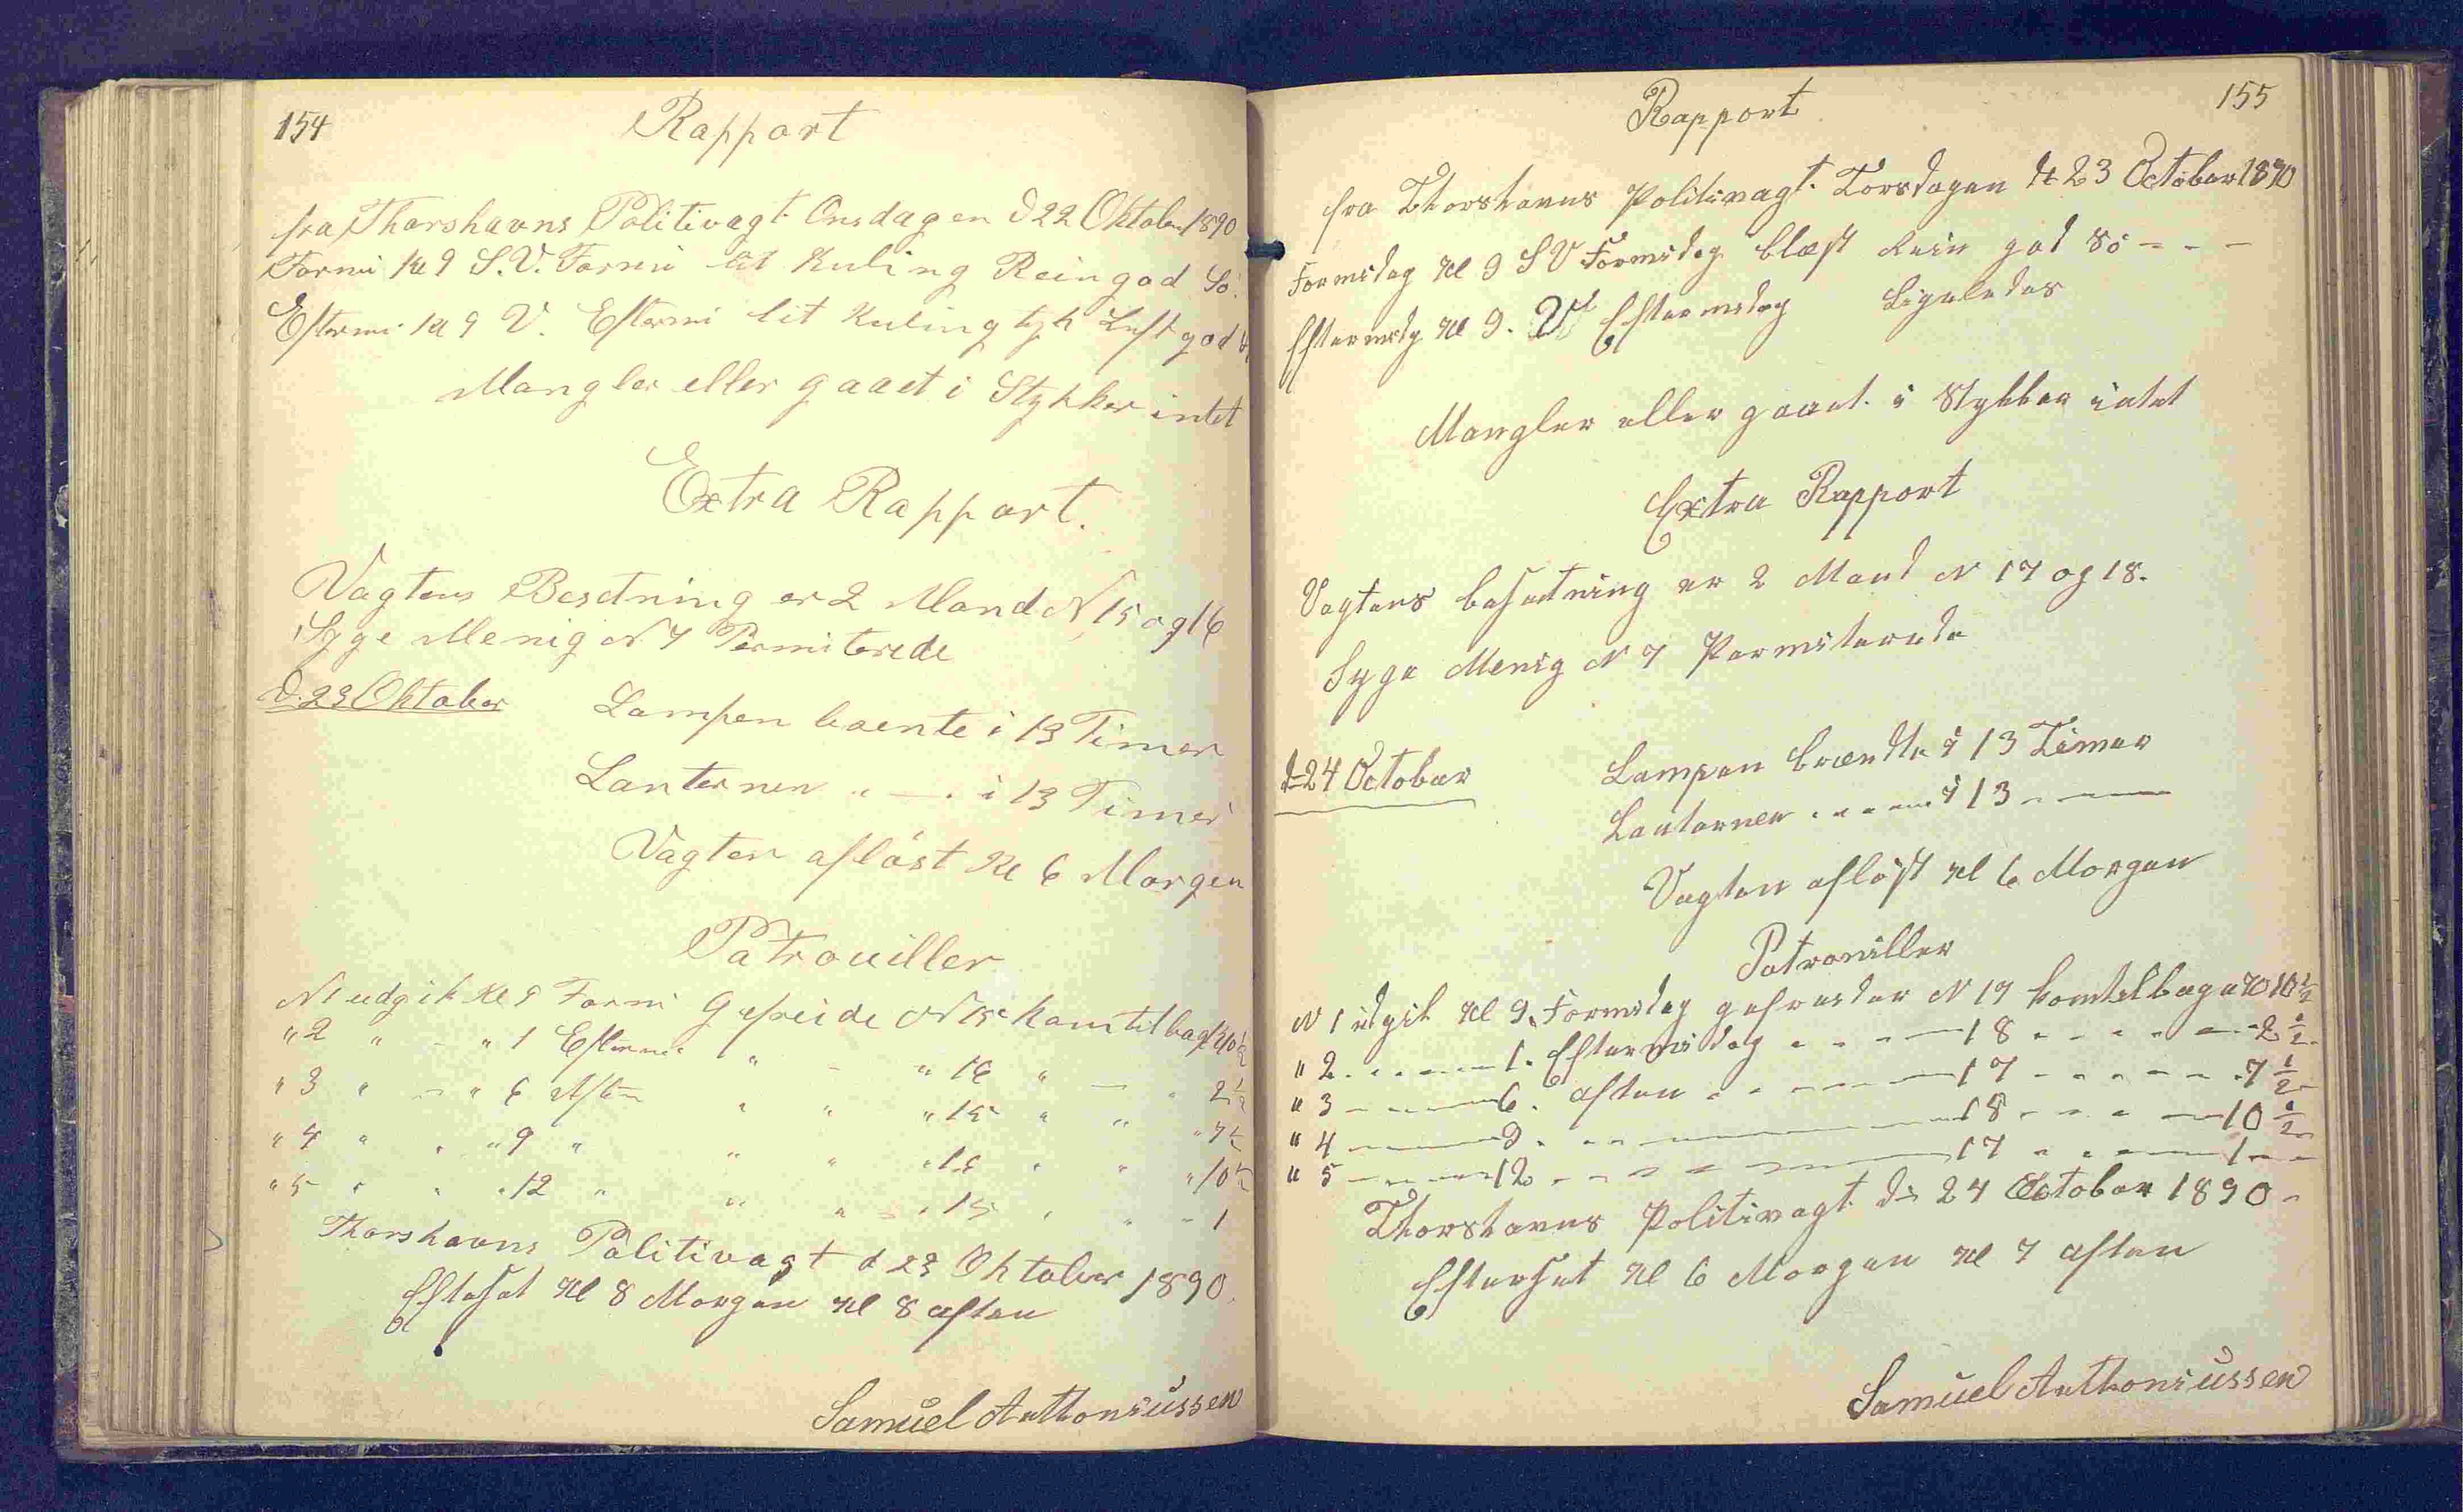 154
Rapport
fra Thorshavns Politivagt Onsdagen d 22 Oktober 1890
Formi Kl 9 S.V. Formi lit Kuling Rein god Sö.
Eftermi Kl 9 V. Eftermi lit Kuling tyk Luft god
Mangler eller gaaet i Stykker intet
Extra Rapport.
Vagtens Besetning er 2 Mand N 15 og 16
Syge Menig N 7 Permiterede
d. 23 Oktober
Lampen brente i 13 Timer
Lanternen " — " i 13 Timer
Vagten aflöst Kl 6 Morgen
Patrouiller
N1 udgik Kl 9 Formi Gefreide N 15 kom tilbage Kl 10½
" 2 " - " 1 Eftermi " - " 16 " — " 2½
" 3 " — " 6 Aften " " " 15 " " " 7½
" 4 " " " 9 " " " " 16 " " " 10½
" 5 " " " 12 " " " " 15 " " " 1
Thorshavns Politivagt d 23 Oktober 1890.
Efterset Kl 8 Morgen Kl 8 aften
Samuel Anthoniussen
155
Rapport
fra Thorshavns Politivagt. Torsdagen d 23 October 1890
Formidag Kl 9 S V Formidag blæst Rein god Sö - - -
Eftermidg Kl 9. V Eftermidag Ligeledes
Mangler eller gaaet i Stykker intet
Extra Rapport
Vagtens besætning er 2 Mand N 17 og 18.
Syge Menig N 7 Permiterede
d 24 October
Lampen brændte i 13 Timer
Lanternen - - - - i 13 - - —
Vagten aflöst Kl 6 Morgen
Patrouiller
N 1 udgik Kl 9. Formidag gefreider N 17 kom tilbage Kl 10½
" 2 - - - - 1. Eftermidag - - - - 18 - - - - - 2½
" 3 - - - - 6. aften - - - - - 17 - - - - - 7½
" 4 - - - - 9. - - - - - 18 - - - - 10½
" 5 - - - - 12 - - - - - - 17 - - - - 1 - -
Thorshavns Politivagt d 24 October 1890 -
Efterset Kl 6 Morgen Kl 7 aften
Samuel Anthoniussen